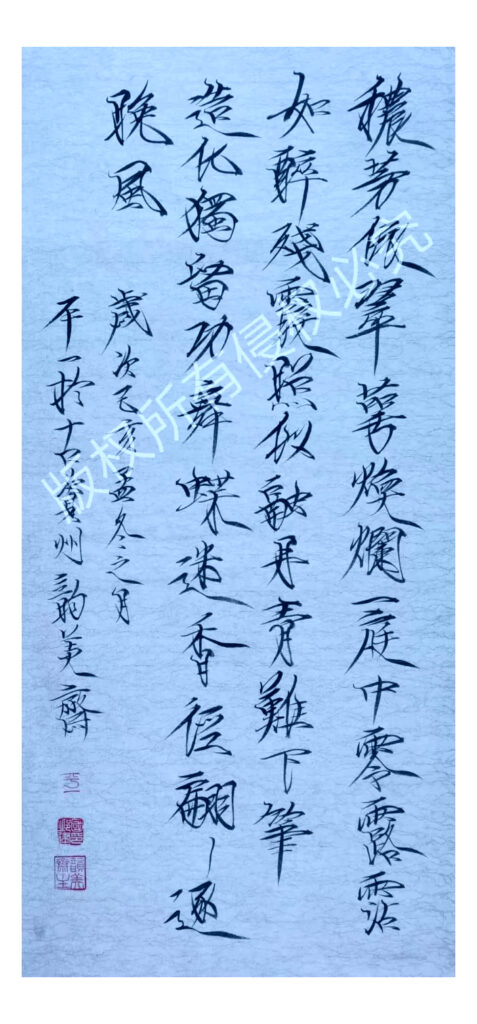 穠芳依翠萼煥爛一庭中零露霑
如醉殘霞照似融丹青難下筆
造化獨留功舞蝶迷香徑翩〻逐
晚風
歲次己亥孟冬之月
平一於古州韵美齋
平一
版权所有侵权必究